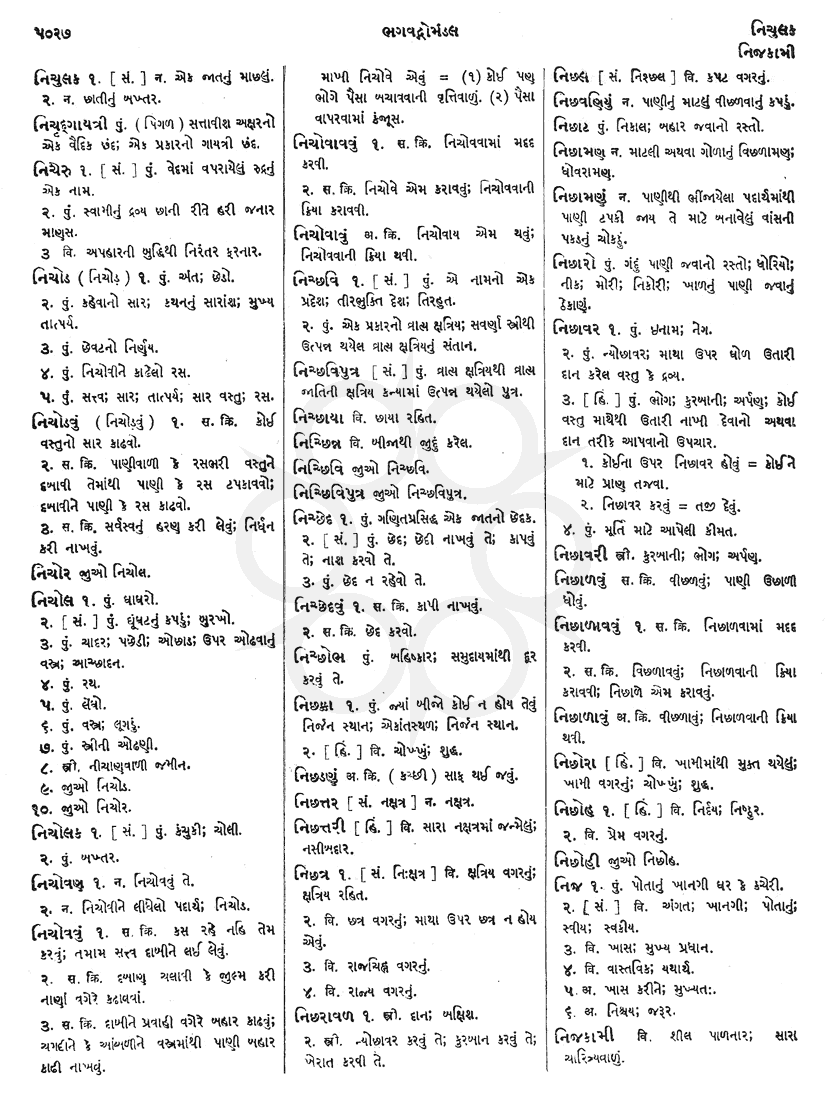 ૫૦૨૭
ભગવદ્ગોમંડલ
નિચુલક
નિજકામી
નિચુલક ૧. [ સં. ] ન. એક જાતનું માછલું.
૨. ન. છાતીનું બખ્તર.
નિચૃદ્ગાયત્રી પું. ( પિંગળ ) સત્તાવીશ અક્ષરનો
એક વૈદિક છંદ; એક પ્રકારનો ગાયત્રી છંદ.
નિચેરુ ૧. [ સં. ] પું. વેદમાં વપરાયેલું રુદ્રનું
એક નામ.
૨. પું. સ્વામીનું દ્રવ્ય છાની રીતે હરી જનાર
માણસ.
૩ વિ. અપહારની બુદ્ધિથી નિરંતર ફરનાર.
નિચોડ ( નિચોડ઼ ) ૧. પું. અંત; છેડો.
૨. પું. કહેવાનો સાર; કથનનું સારાંશ; મુખ્ય
તાત્પર્ય.
૩. પું. છેવટનો નિર્ણય.
૪. પું. નિચોવીને કાઢેલો રસ.
૫. પું. સત્ત્વ; સાર; તાત્પર્ય; સાર વસ્તુ; રસ.
નિચોડવું ( નિચોડ઼વું ) ૧. સ. ક્રિ. કોઈ
વસ્તુનો સાર કાઢવો.
૨. સ. ક્રિ. પાણીવાળી કે રસભરી વસ્તુને
દબાવી તેમાંથી પાણી કે રસ ટપકાવવો;
દબાવીને પાણી કે રસ કાઢવો.
૩. સ. ક્રિ. સર્વસ્વનું હરણ કરી લેવું; નિર્ધન
કરી નાખવું.
નિચોર જુઓ નિચોલ.
નિચોલ ૧. પું. ઘાઘરો.
૨. [ સં. ] પું. ઘૂંઘટનું કપડું; બુરખો.
૩. પું. ચાદર; પછેડી; ઓછાડ; ઉપર ઓઢવાનું
વસ્ત્ર; આચ્છાદન.
૪. પું. રથ.
૫. પું. લેંઘો.
૬. પું. વસ્ત્ર; લૂગડું.
૭. પું. સ્ત્રીની ઓઢણી.
૮. સ્ત્રી. નીચાણવાળી જમીન.
૯. જુઓ નિચોડ.
૧૦. જુઓ નિચોર.
નિચોલક ૧. [ સં. ] પું. કંચુકી; ચોલી.
૨. પું. બખ્તર.
નિચોવણ ૧. ન. નિચોવવું તે.
૨. ન. નિચોવીને લીધેલો પદાર્થ; નિચોડ.
નિચોવવું ૧. સ. ક્રિ. કસ રહે નહિ તેમ
કરવું; તમામ સત્ત્વ દાબીને લઈ લેવું.
૨. સ. ક્રિ. દબાણ ચલાવી કે જુલ્મ કરી
નાણાં વગેરે કઢાવવાં.
૩. સ. ક્રિ. દાબીને પ્રવાહી વગેરે બહાર કાઢવું;
ચગદીને કે આંબળીને વસ્ત્રમાંથી પાણી બહાર
કાઢી નાખવું.
માખી નિચોવે એવું = (૧) કોઈ પણ
ભોગે પૈસા બચાવવાની વૃત્તિવાળું. (૨) પૈસા
વાપરવામાં કંજૂસ.
નિચોવાવવું ૧. સ. ક્રિ. નિચોવવામાં મદદ
કરવી.
૨. સ. ક્રિ. નિચોવે એમ કરાવવું; નિચોવવાની
ક્રિયા કરાવવી.
નિચોવાવું અ. ક્રિ. નિચોવાય એમ થવું;
નિચોવવાની ક્રિયા થવી.
નિચ્છવિ ૧. [ સં. ] પું. એ નામનો એક
પ્રદેશ; તીરભુક્તિ દેશ; તિરહુત.
૨. પું. એક પ્રકારનો વ્રાત્ય ક્ષત્રિય; સવર્ણા સ્ત્રીથી
ઉત્પન્ન થયેલ વ્રાત્ય ક્ષત્રિયનું સંતાન.
નિચ્છવિપુત્ર [ સં. ] પું. વ્રાત્ય ક્ષત્રિયથી વ્રાત્ય
જાતિની ક્ષત્રિય કન્યામાં ઉત્પન્ન થયેલો પુત્ર.
નિચ્છાયા વિ. છાયા રહિત.
નિચ્છિન્ન વિ. બીજાથી જુદું કરેલ.
નિચ્છિવિ જુઓ નિચ્છવિ.
નિચ્છિવિપુત્ર જુઓ નિચ્છવિપુત્ર.
નિચ્છેદ ૧. પું. ગણિતપ્રસિદ્ધ એક જાતનો છેદક.
૨. [ સં. ] પું. છેદ; છેદી નાખવું તે; કાપવું
તે; નાશ કરવો તે.
૩. પું. છેદ ન રહેવો તે.
નિચ્છેદવું ૧. સ. ક્રિ. કાપી નાખવું.
૨. સ. ક્રિ. છેદ કરવો.
નિચ્છોભ પું. બહિષ્કાર; સમુદાયમાંથી દૂર
કરવું તે.
નિછક્કા ૧. પું. જ્યાં બીજો કોઈ ન હોય તેવું
નિર્જન સ્થાન; એકાંતસ્થળ; નિર્જન સ્થાન.
૨. [ હિં. ] વિ. ચોખ્ખું; શુદ્ધ.
નિછડણું અ. ક્રિ. ( કચ્છી ) સાફ થઈ જવું.
નિછત્તર [ સં. નક્ષત્ર ] ન. નક્ષત્ર.
નિછત્તરી [ હિં. ] વિ. સારા નક્ષત્રમાં જન્મેલું;
નસીબદાર.
નિછત્ર ૧. [ સં. નિઃક્ષત્ર ] વિ. ક્ષત્રિય વગરનું;
ક્ષત્રિય રહિત.
૨. વિ. છત્ર વગરનું; માથા ઉપર છત્ર ન હોય
એવું.
૩. વિ. રાજચિહ્ન વગરનું.
૪. વિ. રાજ્ય વગરનું.
નિછરાવળ ૧. સ્ત્રી. દાન; બક્ષિશ.
૨. સ્ત્રી. ન્યોછાવર કરવું તે; કુરબાન કરવું તે;
ખેરાત કરવી તે.
નિછલ [ સં. નિશ્છલ ] વિ. કપટ વગરનું.
નિછવણિયું ન. પાણીનું માટલું વીછળવાનું કપડું.
નિછાટ પું. નિકાલ; બહાર જવાનો રસ્તો.
નિછામણ ન. માટલી અથવા ગોળાનું વિછળામણ;
ધોવરામણ.
નિછામણું ન. પાણીથી ભીંજાયેલા પદાર્થમાંથી
પાણી ટપકી જાય તે માટે બનાવેલું વાંસની
પકડનું ચોકઠું.
નિછારો પું. ગંદું પાણી જવાનો રસ્તો; ધોરિયો;
નીક; મોરી; નિકોરી; ખાળનું પાણી જવાનું
ઠેકાણું.
નિછાવર ૧. પું. ઇનામ; નેગ.
૨. પું. ન્યોછાવર; માથા ઉપર ઘોળ ઉતારી
દાન કરેલ વસ્તુ કે દ્રવ્ય.
૩. [ હિં. ] પું. ભોગ; કુરબાની; અર્પણ; કોઈ
વસ્તુ માથેથી ઉતારી નાખી દેવાનો અથવા
દાન તરીકે આપવાનો ઉપચાર.
૧. કોઈના ઉપર નિછાવર હોવું = કોઈને
માટે પ્રાણ તજવા.
૨. નિછાવર કરવું = તજી દેવું.
૪. પું. મૂર્તિ માટે આપેલી કીમત.
નિછાવરી સ્ત્રી. કુરબાની; ભોગ; અર્પણ.
નિછાળવું સ. ક્રિ. વીછળવું; પાણી ઉછાળી
ધોવું.
નિછાળાવવું ૧. સ. ક્રિ. નિછાળવામાં મદદ
કરવી.
૨. સ. ક્રિ. વિછળાવવું; નિછાળવાની ક્રિયા
કરાવવી; નિછાળે એમ કરાવવું.
નિછાળાવું અ. ક્રિ. વીછળાવું; નિછાળવાની ક્રિયા
થવી.
નિછોરા [ હિં. ] વિ. ખામીમાંથી મુક્ત થયેલું;
ખામી વગરનું; ચોખ્ખું; શુદ્ધ.
નિછોહ ૧. [ હિં. ] વિ. નિર્દય; નિષ્ઠુર.
૨. વિ. પ્રેમ વગરનું.
નિછોહી જુઓ નિછોહ.
નિજ ૧. પું. પોતાનું ખાનગી ઘર કે કચેરી.
૨. [ સં. ] વિ. અંગત; ખાનગી; પોતાનું;
સ્વીય; સ્વકીય.
૩. વિ. ખાસ; મુખ્ય પ્રધાન.
૪. વિ. વાસ્તવિક; યથાર્થ.
૫. અ. ખાસ કરીને; મુખ્યત:.
૬. અ. નિશ્ચય; જરૂર.
નિજકામી વિ. શીલ પાળનાર; સારા
ચારિત્ર્યવાળું.